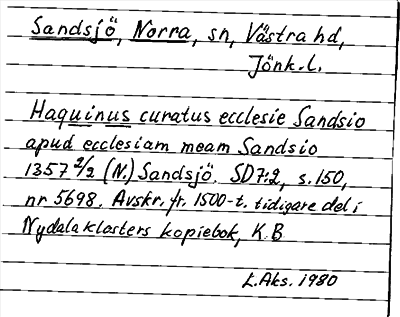 Sandsjö, Norra, sn, Västra hd,
Jönk.l.
Haquinus curatus ecclesie Sandsio
apud ecclesiam meam Sandsio
1357 2/2 (N.) Sandsjö. SD7:2, s.150,
nr 5698. Avskr. fr. 1500-t. tidigare del i
Nydala klosters kopiebok, K.B
L.Aks. 1980